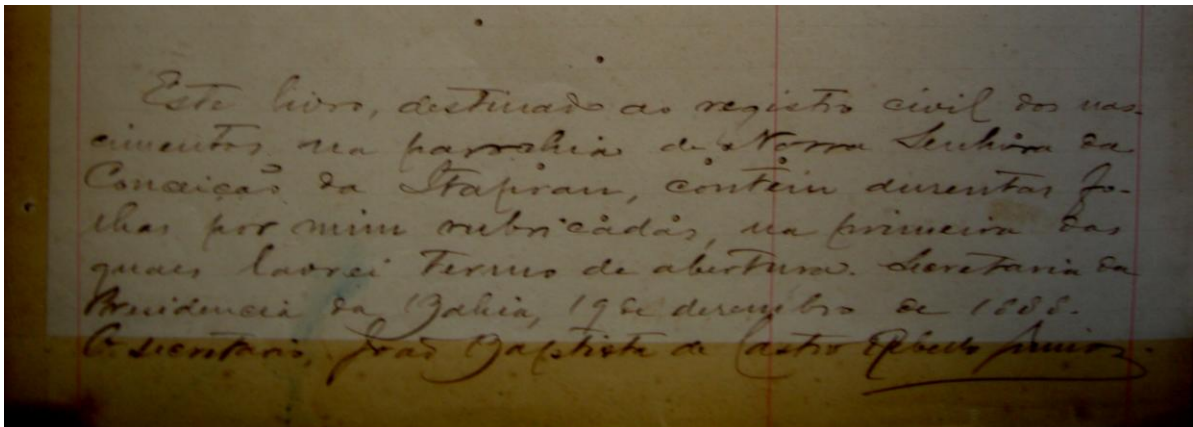 Este livro, destinado ao registro civil dos nas-
cimentos na parochia de Nossa Senhora da
Conceição da Itapiran, contém duzentas fo-
lhas por mim rubricadas, na primeira das
quaes lavrei termo de abertura. Secretaria da
Presidencia da Bahia, 19 de dezembro de 1888.
O secretario, João Baptista de Castro Rebello Junior.